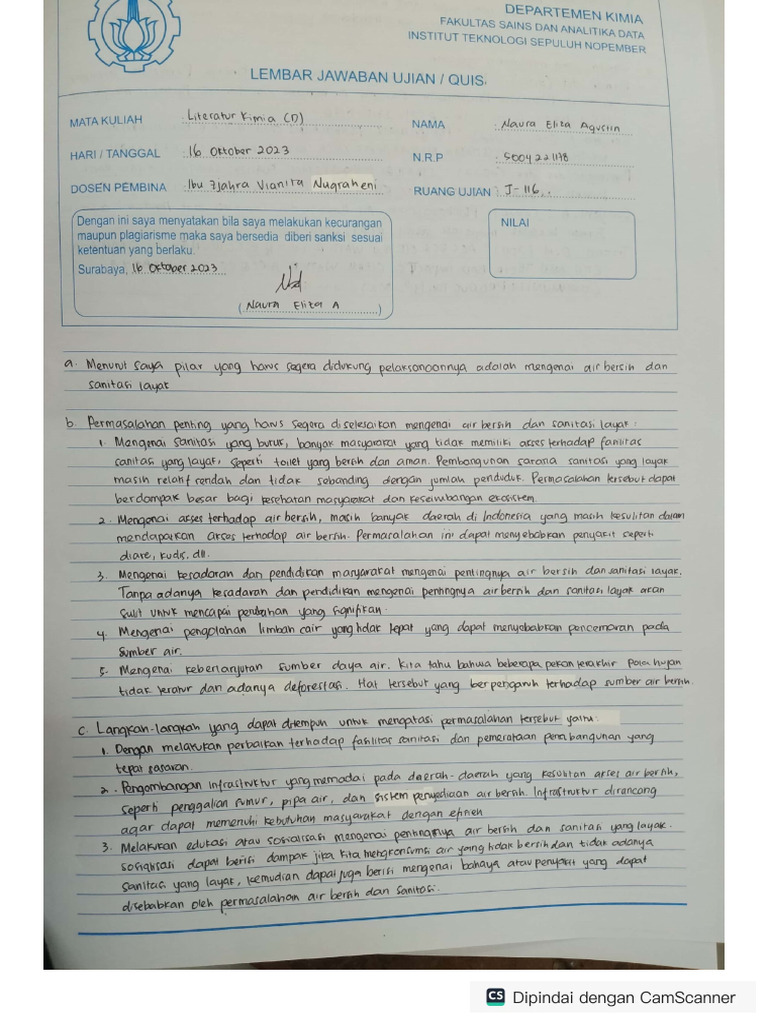 DEPARTEMEN KIMIA
FAKULTAS SAINS DAN ANALITIKA DATA
INSTITUT TEKNOLOGI SEPULUH NOPEMBER
LEMBAR JAWABAN UJIAN / QUIS
MATA KULIAH : Literatur Kimia (D)
NAMA : Naura Eliza Agustin
HARI / TANGGAL : 16 Oktober 2023
N.R.P : 5004221178
DOSEN PEMBINA : Ibu Zjahra Vianita Nugraheni
RUANG UJIAN : J-116
Dengan ini saya menyatakan bila saya melakukan kecurangan
maupun plagiarisme maka saya bersedia diberi sanksi sesuai
ketentuan yang berlaku.
Surabaya, 16 Oktober 2023
(Naura Eliza A)
NILAI
a. Menurut saya pilar yang harus segera didukung pelaksanaannya adalah mengenai air bersih dan
sanitasi layak
b. Permasalahan penting yang harus segera diselesaikan mengenai air bersih dan sanitasi layak :
1. Mengenai sanitasi yang buruk, banyak masyarakat yang tidak memiliki akses terhadap fasilitas
sanitasi yang layak, seperti toilet yang bersih dan aman. Pembangunan sarana sanitasi yang layak
masih relatif rendah dan tidak sebanding dengan jumlah penduduk. Permasalahan tersebut dapat
berdampak besar bagi kesehatan masyarakat dan keseimbangan ekosistem.
2. Mengenai akses terhadap air bersih, masih banyak daerah di Indonesia yang masih kesulitan dalam
mendapatkan akses terhadap air bersih. Permasalahan ini dapat menyebabkan penyakit seperti
diare, kudis, dll.
3. Mengenai kesadaran dan pendidikan masyarakat mengenai pentingnya air bersih dan sanitasi layak.
Tanpa adanya kesadaran dan pendidikan mengenai pentingnya air bersih dan sanitasi layak akan
sulit untuk mencapai perubahan yang signifikan.
4. Mengenai pengolahan limbah cair yang tidak tepat yang dapat menyebabkan pencemaran pada
sumber air.
5. Mengenai keberlanjutan sumber daya air. Kita tahu bahwa beberapa pekan terakhir pola hujan
tidak teratur dan adanya deforestasi. Hal tersebut yang berpengaruh terhadap sumber air bersih.
c. Langkah-langkah yang dapat ditempuh untuk mengatasi permasalahan tersebut yaitu:
1. Dengan melakukan perbaikan terhadap fasilitas sanitasi dan pemerataan pembangunan yang
tepat sasaran.
2. Pengembangan infrastruktur yang memadai pada daerah-daerah yang kesulitan akses air bersih,
seperti penggalian sumur, pipa air, dan sistem penyediaan air bersih. Infrastruktur dirancang
agar dapat memenuhi kebutuhan masyarakat dengan efisien
3. Melakukan edukasi atau sosialisasi mengenai pentingnya air bersih dan sanitasi yang layak.
sosialisasi dapat berisi dampak jika kita mengkonsumsi air yang tidak bersih dan tidak adanya
sanitasi yang layak, kemudian dapat juga berisi mengenai bahaya atau penyakit yang dapat
disebabkan oleh permasalahan air bersih dan sanitasi.
CS Dipindai dengan CamScanner